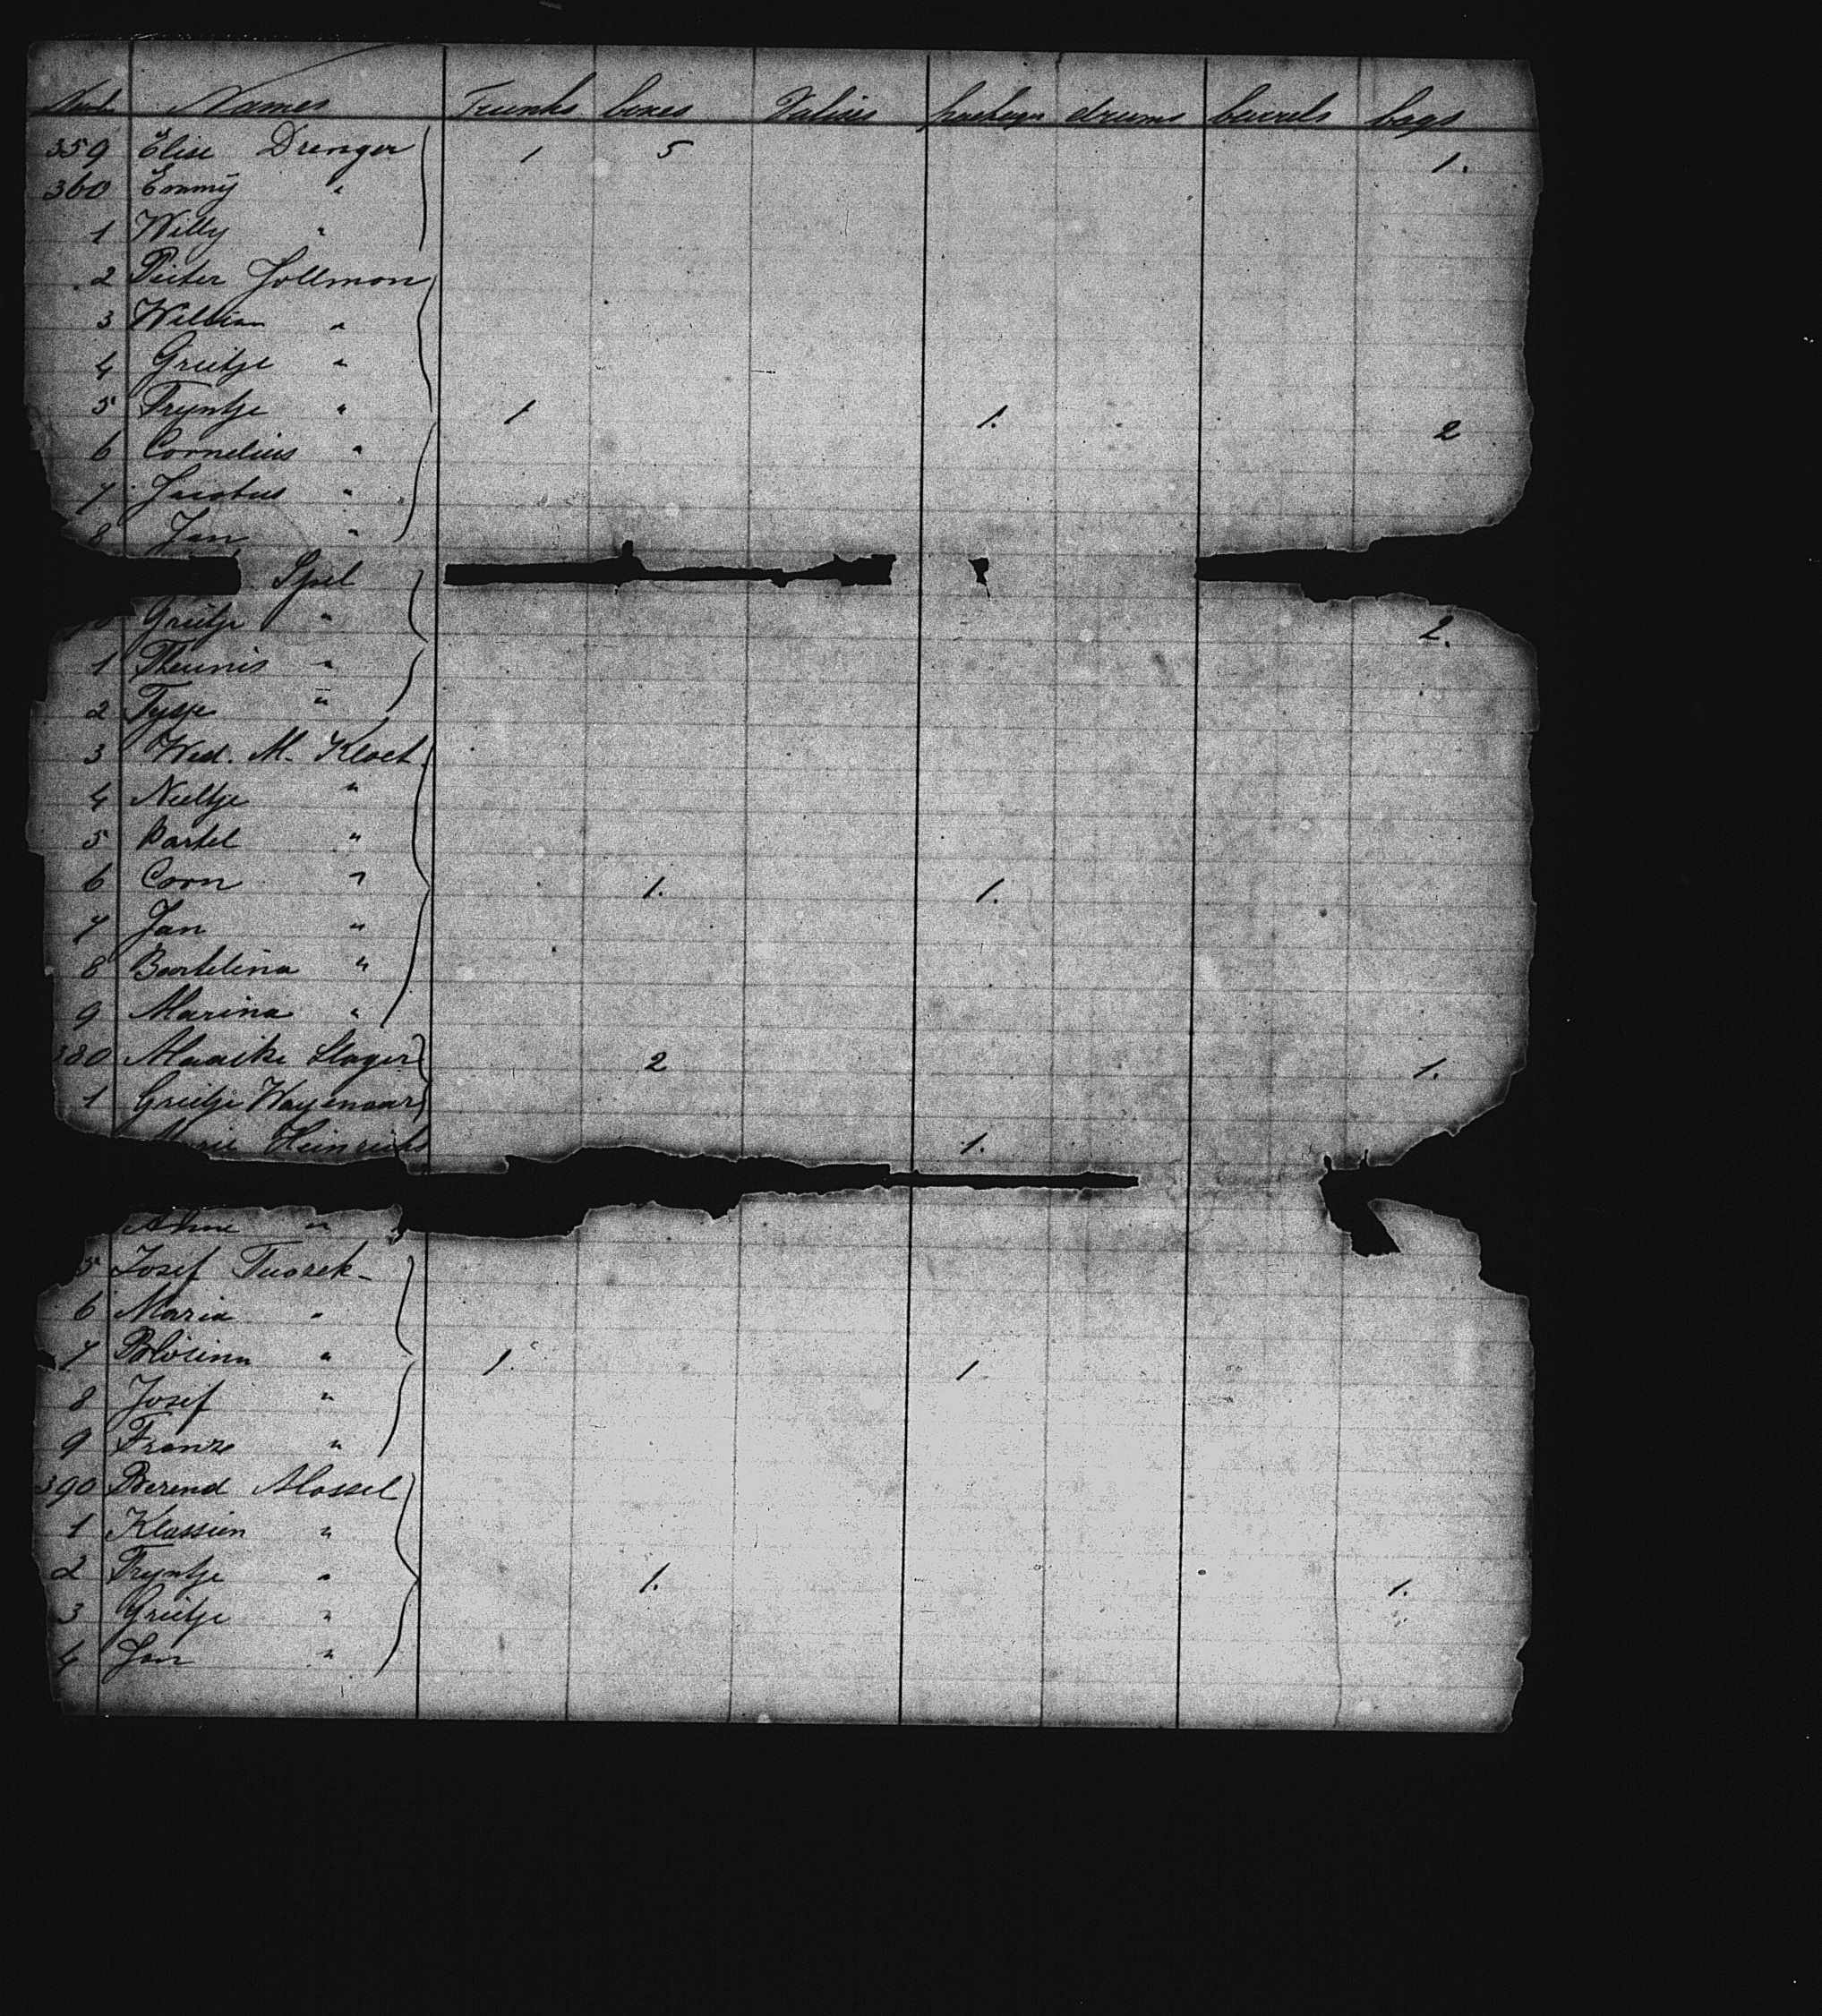 Names Trunks boxes Valises packages drums barrels bags
359 Elise Drenger 1 5 1.
360 Emmy "
1 Willy "
2 Pieter Jollmon
3 Willem "
4 Grietje "
5 Tryntje " 1 1. 2
6 Cornelius "
7 Jacobus "
8 Jan "
Spiel
Grietje " 2.
1 Theunis "
2 Tysje "
3 Wed. M. Kloet
4 Neeltje "
5 Bartel "
6 Corn " 1. 1.
7 Jan "
8 Bartelina "
9 Marina "
380 Maaike Slager 2 1.
1 Grietje Wagenaar
Marie Heinrichs 1.
"
5 Josef Tuosek
6 Maria "
7 " 1. 1
8 Josef "
9 Franze "
390 Berend Mossel
1 Klassien "
2 Tryntje " 1. 1.
3 Grietje "
4 Jan "